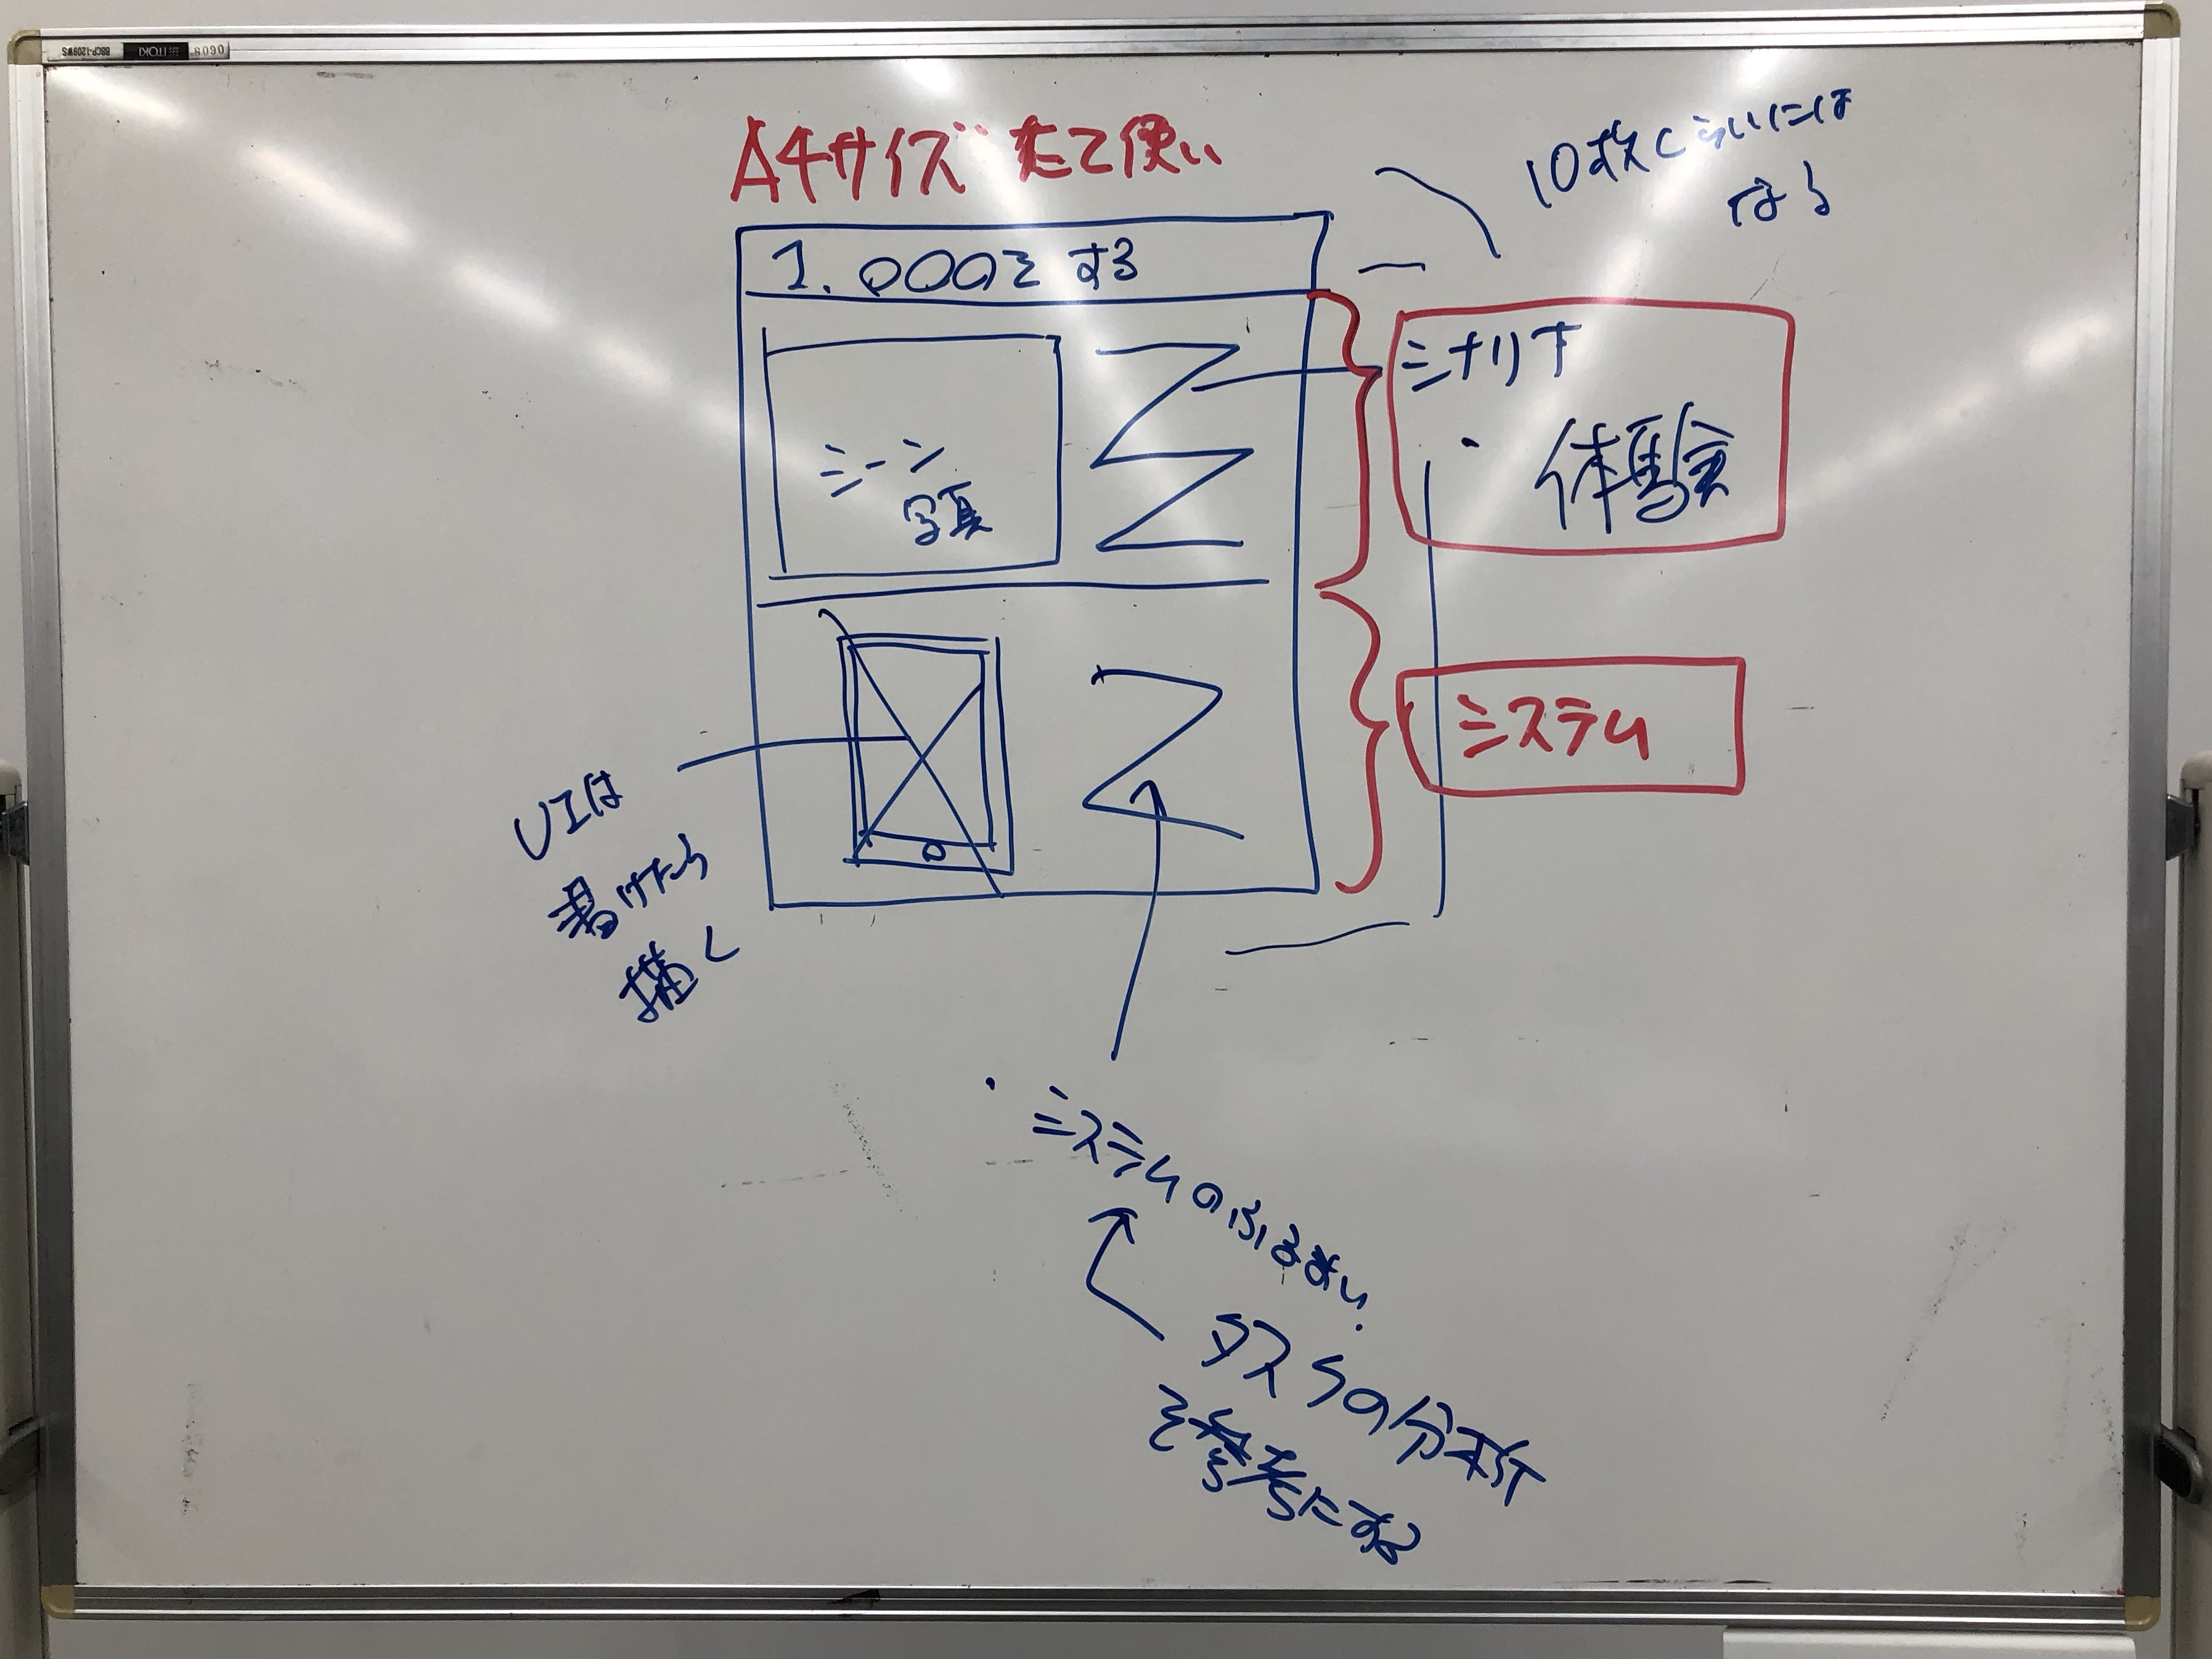 A4サイズ たて使い
10枚くらいには
なる
1. ○○○をする
シナリオ
体験
シーン
写真
システム
UIは
書けたら
描く
システムのふるまい
タスクの分析
を参考にする
ITOKI
BBCP-1209WS